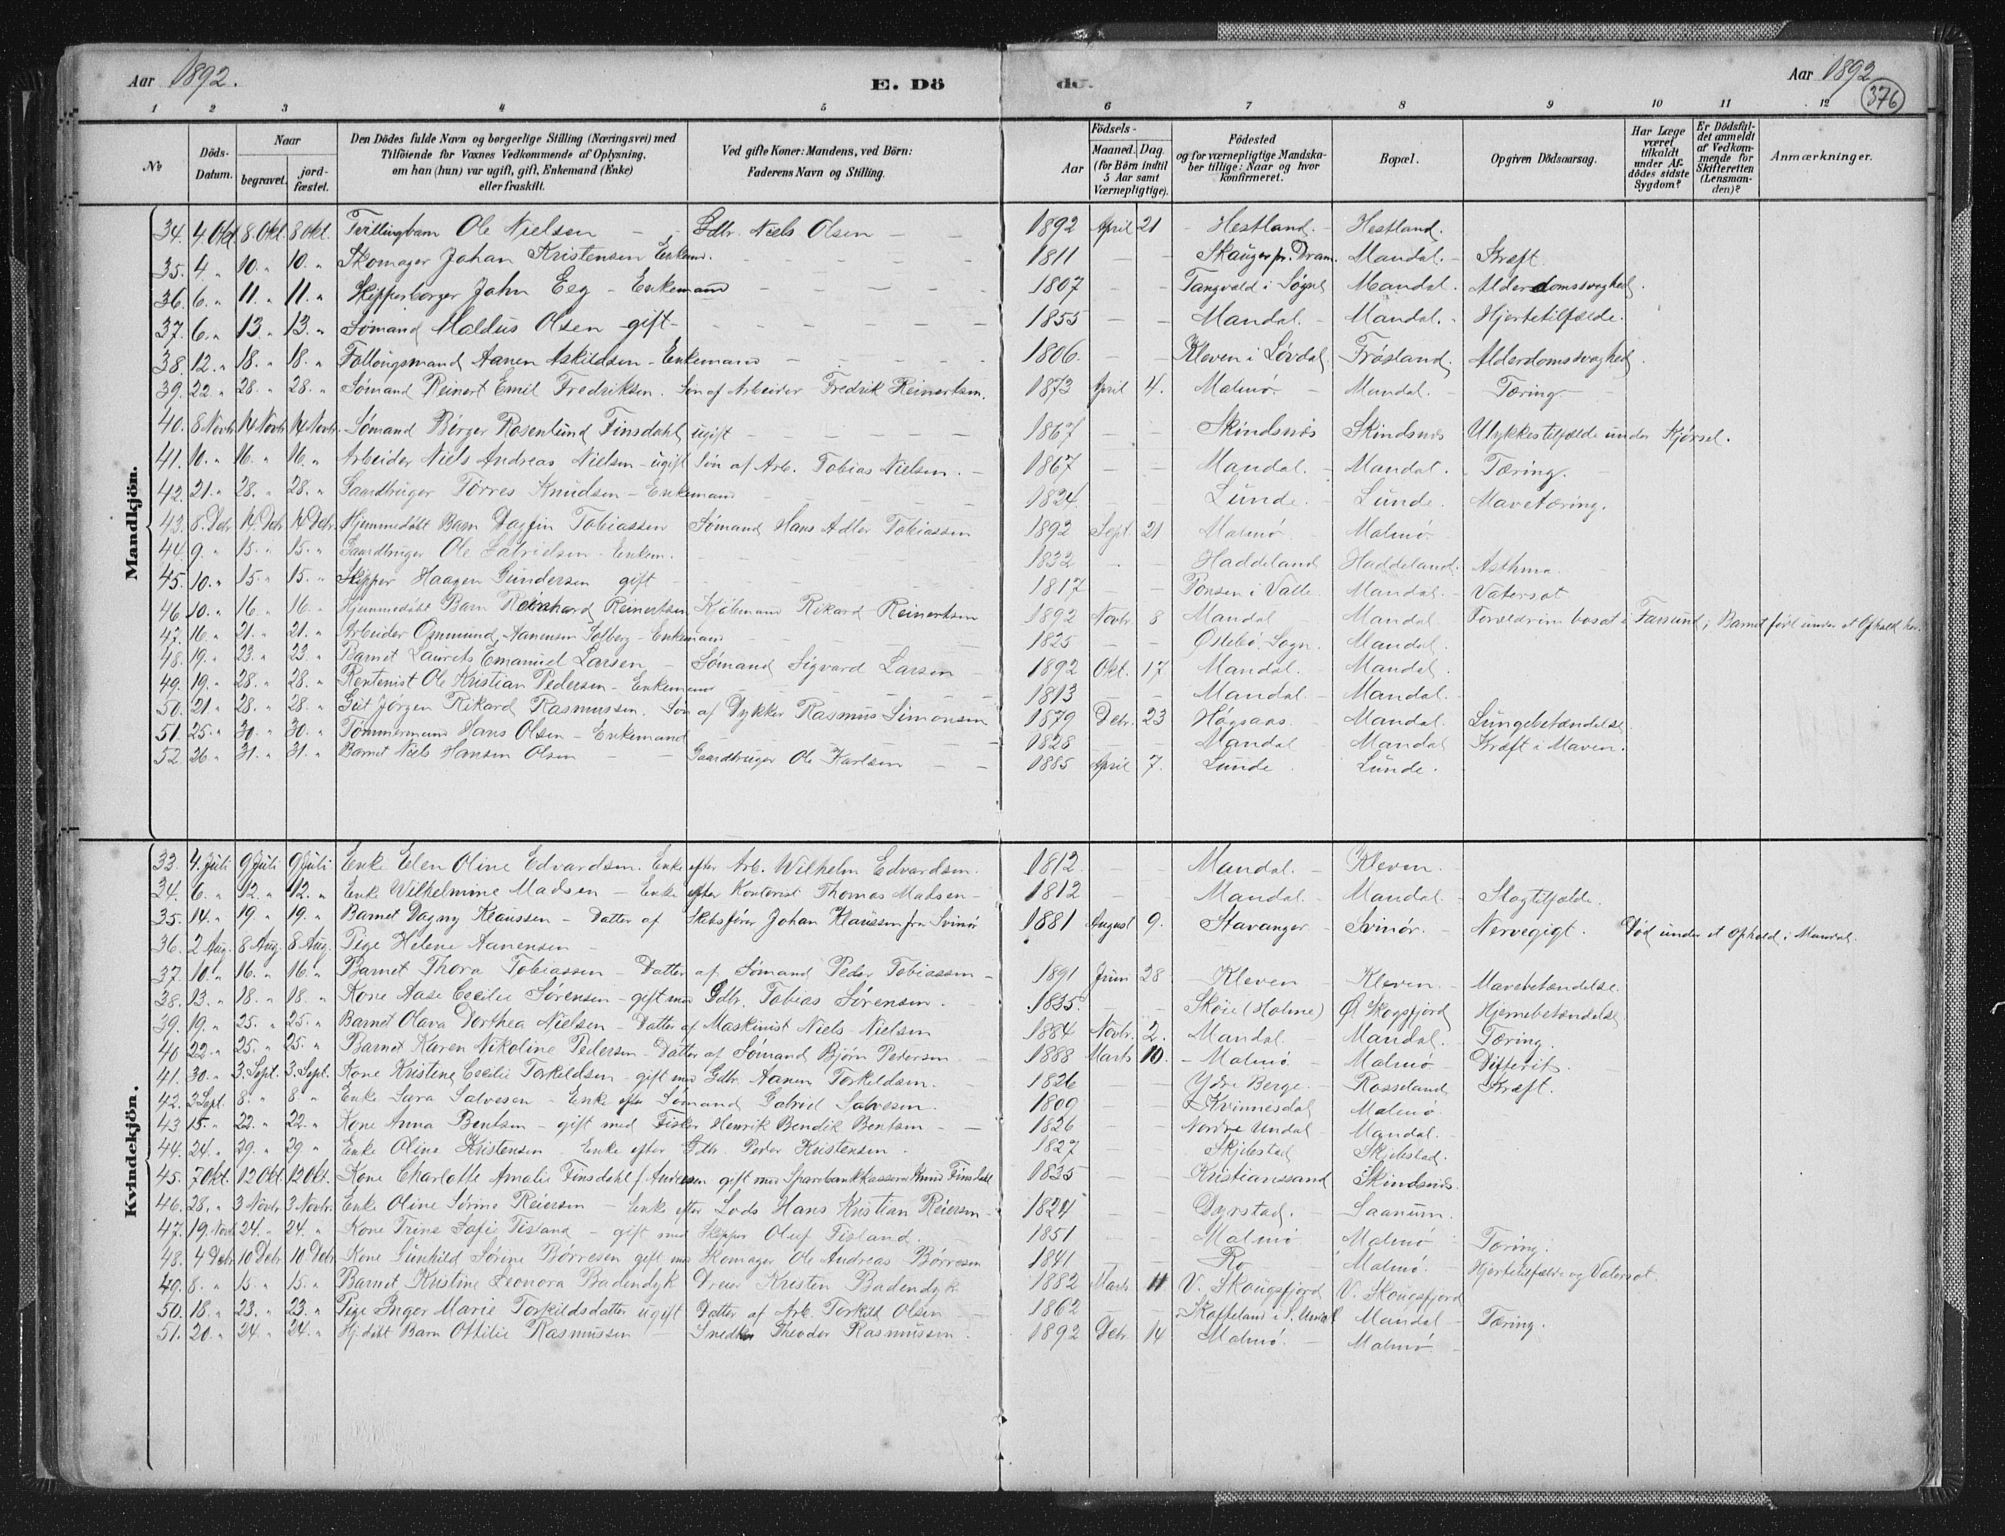 Aar 1892. E. Dö de. Aar 1892
376
1 2 3 4 5 6 7 8 9 10 11 12
No Döds-Datum. Naar begravet. jordfæstet. Den Dödes fulde Navn og borgerlige Stilling (Næringsvei) med Tilföiende for Voxnes Vedkommende af Oplysning, om han (hun) var ugift, gift, Enkemand (Enke) eller fraskilt. Ved gifte Koner: Mandens, ved Börn: Faderens Navn og Stilling. Födsels- Aar Maaned. Dag. (for Börn indtil 5 Aar samt Værnepligtige). Födested og for værnepligtige Mandskaber tillige: Naar og hvor konfirmeret. Bopæl. Opgiven Dödsaarsag. Har Læge været tilkaldt under Afdödes sidste Sygdom? Er Dödsfaldet anmeldt af Vedkommende for Skifteretten (Lensmanden)? Anmærkninger.
Mandkjön.
34. 4. Okt 8. Okt. 8 Okt. Tvillingbarn Ole Nielsen – Gdbr. Niels Olsen – 1892 April 21 Hestland. Hestland.
35. 4 „ 10. „ 10. „ Skomager Johan Kristensen Enkem. 1811 Skauger pr. Dram. Mandal. Kræft.
36. 6. „ 11. „ 11. „ Skipperborger John Eeg – Enkemand 1807 Tangvald i Søgne Mandal. Alderdomssvaghed.
37. 6. „ 13. „ 13. „ Sømand Maldus Olsen – gift – 1855 Mandal. Mandal. Hjertetilfælde.
38. 12. „ 18. „ 18. „ Aanen Askildsen – Enkemand 1806. Kleven i Løvdal Frøsland. Alderdomssvaghed.
39. 22. „ 28. „ 28. „ Sømand Reinert Emil Fredriksen. Søn af Arbeider Fredrik Reinertsen. 1873 April 4. Malmø. Mandal. Tæring.
40. 8 Novbr 14 Novbr 14 Novbr. Sømand Børger Rosenlund Finsdahl, ugift 1867 Skindsnæs Skindsnæs Ulykkestilfælde under Kjørsel.
41. 10. „ 16. „ 16. „ Arbeider Niels Andreas Nielsen – ugift Søn af Arb. Tobias Nielsen. 1867 Mandal. Mandal. Tæring.
42. 21. „ 28. „ 28. „ Gaardbruger Torres Knudsen – Enkemand 1824. Lunde. Lunde. Mavetæring.
43. 8. Debr 14. Debr 14 Debr. Hjemmedøbt Barn Dagfin Tobiassen Sømand Hans Adler Tobiassen 1892 Sept. 21 Malmø. Malmø.
44. 9. „ 15. „ 15. „ Gaardbruger Ole Gabrielsen – Enkem. 1832 Haddeland Haddeland. Asthma.
45. 10. „ 15. „ 15. „ Skipper Haagen Gundersen gift 1817 Ponsen i Valle Mandal. Vatersot
46. 10. „ 16. „ 16. „ Hjemmedøbt Barn Reinhard Reinertsen Kjøbmand Rikard Reinertsen 1892 Novbr 8 Mandal Mandal. Forældrene bosat i Farsund; Barnet født under et Ophold her.
47. 16. „ 21. „ 21. „ Arbeider Osmund Aanensen Solberg – Enkemand 1825 Østebø. Sogn. Mandal.
48. 19. „ 23. „ 23. „ Barnet Laurets Emanuel Larsen – Sømand Sigvard Larsen 1892 Okt. 17 Mandal. Mandal.
49. 19. „ 28. „ 28. „ Rentenist Ole Kristian Pedersen – Enkemand 1813 Mandal. Mandal.
50. 21 „ 28. „ 28. „ Gut Jørgen Rikard Rasmussen. Søn af Dykker Rasmus Simonsen 1879 Debr. 23 Høgsaas. Mandal. Lungebetændelse
51. 25. „ 30. „ 30. „ Tømmermand Hans Olsen – Enkemand 1828 Mandal Mandal Kræft i Maven.
52 26 „ 31. „ 31. „ Barnet Niels Hansen Olsen Gaardbruger Ole Karlsen 1885 April 7. Lunde Lunde.
Kvindekjön.
33. 4. Juli 9 Juli 9 Juli Enke Elen Oline Edvardsen. Enke efter Arb. Wilhelm Edvardsen. 1812. Mandal. Kleven.
34. 6. „ 12. „ 12. „ Enke Wilhelmine Madsen – Enke efter Kontorist Thomas Madsen – 1812 Mandal. Mandal. Slagtilfælde.
35. 14. „ 19. „ 19. „ Barnet Dagny Klaussen – Datter af Skibsfører Johan Klaussen fra Svinør 1881 August 9. Stavanger Svinør. Nervegigt. Død under et Ophold i Mandal.
36. 2 Aug. 8 Aug. 8 Aug. Pige Helene Aanensen –
37. 10. „ 16. „ 16. „ Barnet Thora Tobiassen – Datter af Sømand Peder Tobiassen – 1891 Juni 28 Kleven Kleven. Mavebetændelse.
38. 13. „ 18. „ 18. „ Kone Aase Cecilie Sørensen – gift med Gdbr. Tobias Sørensen. 1835. Skøie (Holme) Ø. Skogsfjord Hjernebetændelse
39. 19. „ 25. „ 25. „ Barnet Olava Dorthea Nielsen – Datter af Maskinist Niels Nielsen 1884 Novbr. 2. Mandal. Mandal. Tæring.
40 22. „ 25. „ 25. „ Barnet Karen Nikoline Pedersen – Datter af Sømand Bjørn Pedersen 1888 Marts 10. Malmø Malmø Difterit.
41. 30. „ 3. Sept. 3. Sept. Kone Kristine Cecilie Torkildsen – gift med Gdbr. Aanen Torkildsen. 1826 Ydre Berge. Rosseland Kræft.
42. 3 Sept. 8. „ 8 „ Enke Sara Salvesen – Enke efter Sømand Gabriel Salvesen. 1809 Kvinnesdal Malmø.
43 15. „ 22. „ 22. „ Kone Anna Bentsen – gift med Fisker Henrik Bendik Bentsen – 1826 Nordre Undal Mandal.
44. 24. „ 29. „ 29 „ Enke Oline Kristensen Enke efter Gdbr. Peder Kristensen. 1827 Skjebstad Skjebstad.
45. 7 Okt. 12 Okt. 12 Okt. Kone Charlotte Amalie Finsdahl f. gift med Sparebankkasserer Knud Finsdahl 1835 Kristianssand Skindsnæs.
46. 28. „ 3 Novbr 3 Novbr. Enke Oline Sørine Reiersen – Enke efter Lods Hans Kristian Reiersen 1824 Dyrstad. Saanum.
47. 19. Novb 24. „ 24. „ Kone Trine Sofie Fisland – gift med Skipper Oluf Fisland. 1851 Malmø Malmø Tæring.
48. 4 Debr. 10 Debr. 10 Debr Kone Gunhild Sørine Børresen gift med Skomager Ole Andreas Børresen 1841 Ro Malmø. Hjertetilfælde og Vatersot.
49. 8. „ 15. „ 15. „ Barnet Kristine Leonora Badendyk Dreier Kristen Badendyk 1882 Marts 11 V. Skougsfjord V. Skougsfjord
50. 18. „ 23. „ 23. „ Pige Inger Marie Torkildsdatter ugift Datter af Arb. Torkild Olsen 1862 i S. Undal Mandal Tæring.
51. 20. „ 24. „ 24. „ Hj.døbt Barn Ottilie Rasmussen – Snedker Theodor Rasmussen. 1892 Debr 14 Malmø. Malmø.